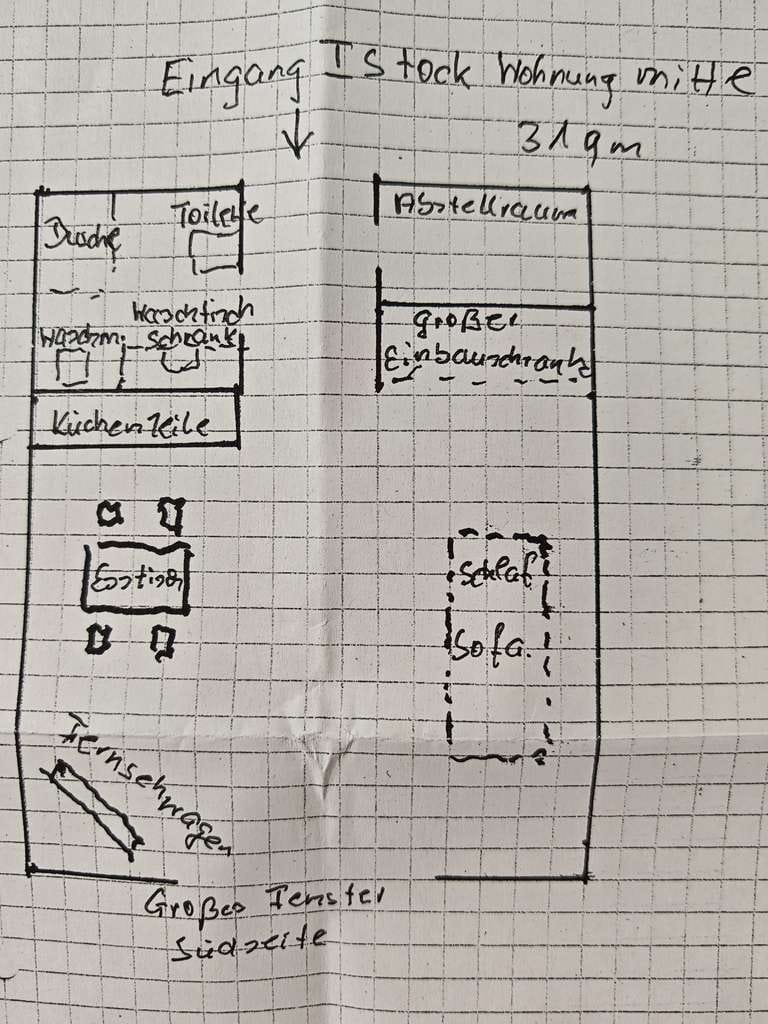 Eingang I Stock Wohnung mitte
31 qm
Toilette
Dusche
Abstellraum
Waschtisch
schrank
Waschm.
großer
Einbauschrank
Küchenzeile
Esstisch
Schlaf
Sofa.
Fernschrager
Großes Fenster
Südseite